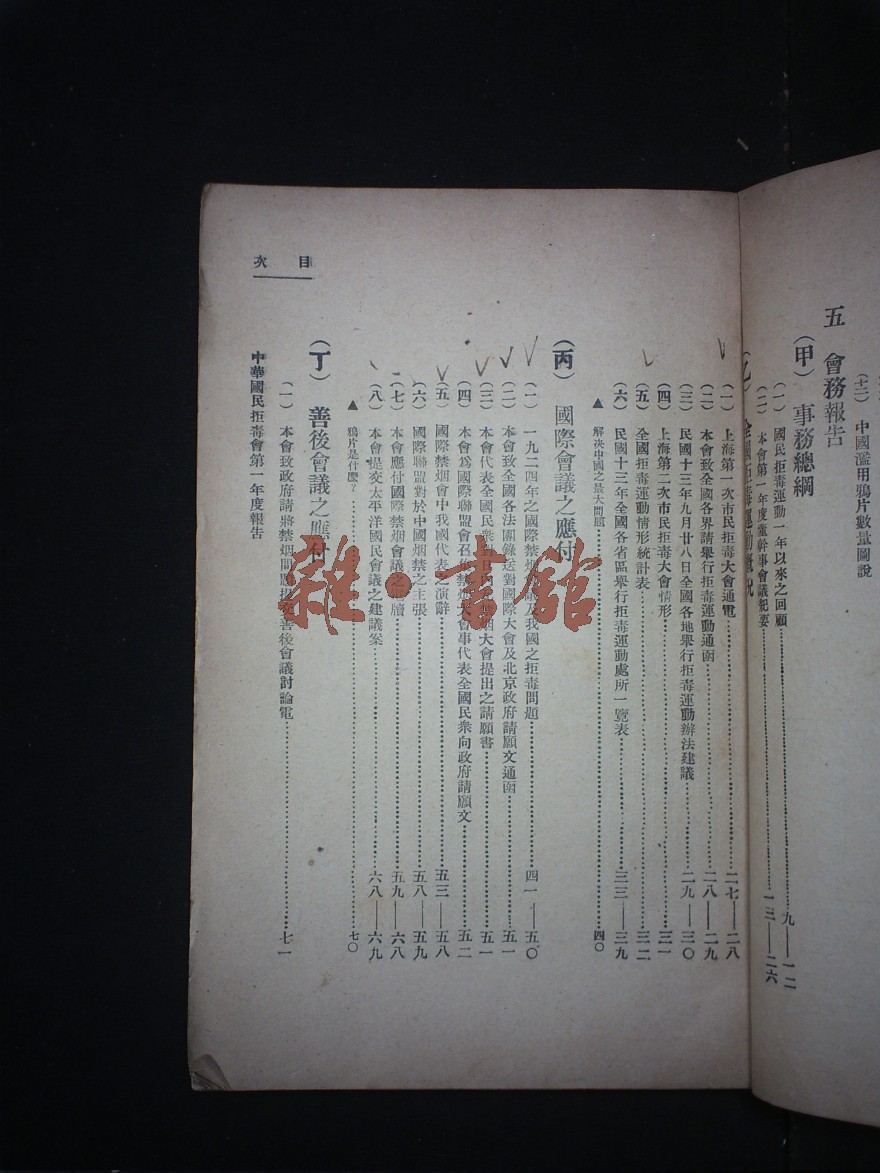 (十二) 中國濫用鴉片數量圖說
五 會務報告
(甲) 事務總綱
(一) 國民拒毒運動一年以來之回顧 九——一二
(二) 本會第一年度董幹事會議紀要 一三——二六
(乙) 全國拒毒運動概況
(一) 上海第一次市民拒毒大會通電 二七——二八
(二) 本會致全國各界請舉行拒毒運動通函 二八——二九
(三) 民國十三年九月廿八日全國各地舉行拒毒運動辦法建議 二九——三〇
(四) 上海第二次市民拒毒大會情形 三一
(五) 全國拒毒運動情形統計表 三二
(六) 民國十三年全國各省區舉行拒毒運動處所一覽表 三三——三九
▲ 解決中國之最大問題 四〇
(丙) 國際會議之應付
(一) 一九二四年之國際禁烟會議及我國之拒毒問題 四一——五〇
(二) 本會致全國各法團錄送對國際大會及北京政府請願文通函 五一
(三) 本會代表全國民衆向日內禁烟大會提出之請願書 五一
(四) 本會爲國際聯盟會召集禁烟大會事代表全國民衆向政府請願文 五二
(五) 國際禁烟會中我國代表之演辭 五三——五八
(六) 國際聯盟對於中國烟禁之主張 五八——五九
(七) 本會應付國際禁烟會議之牘 五九——六八
(八) 本會提交太平洋國民會議之建議案 六八——六九
▲ 鴉片是什麼? 七〇
(丁) 善後會議之應付
(一) 本會致政府請將禁烟問題提交善後會議討論電 七一
中華國民拒毒會第一年度報告
目次
雜·書館